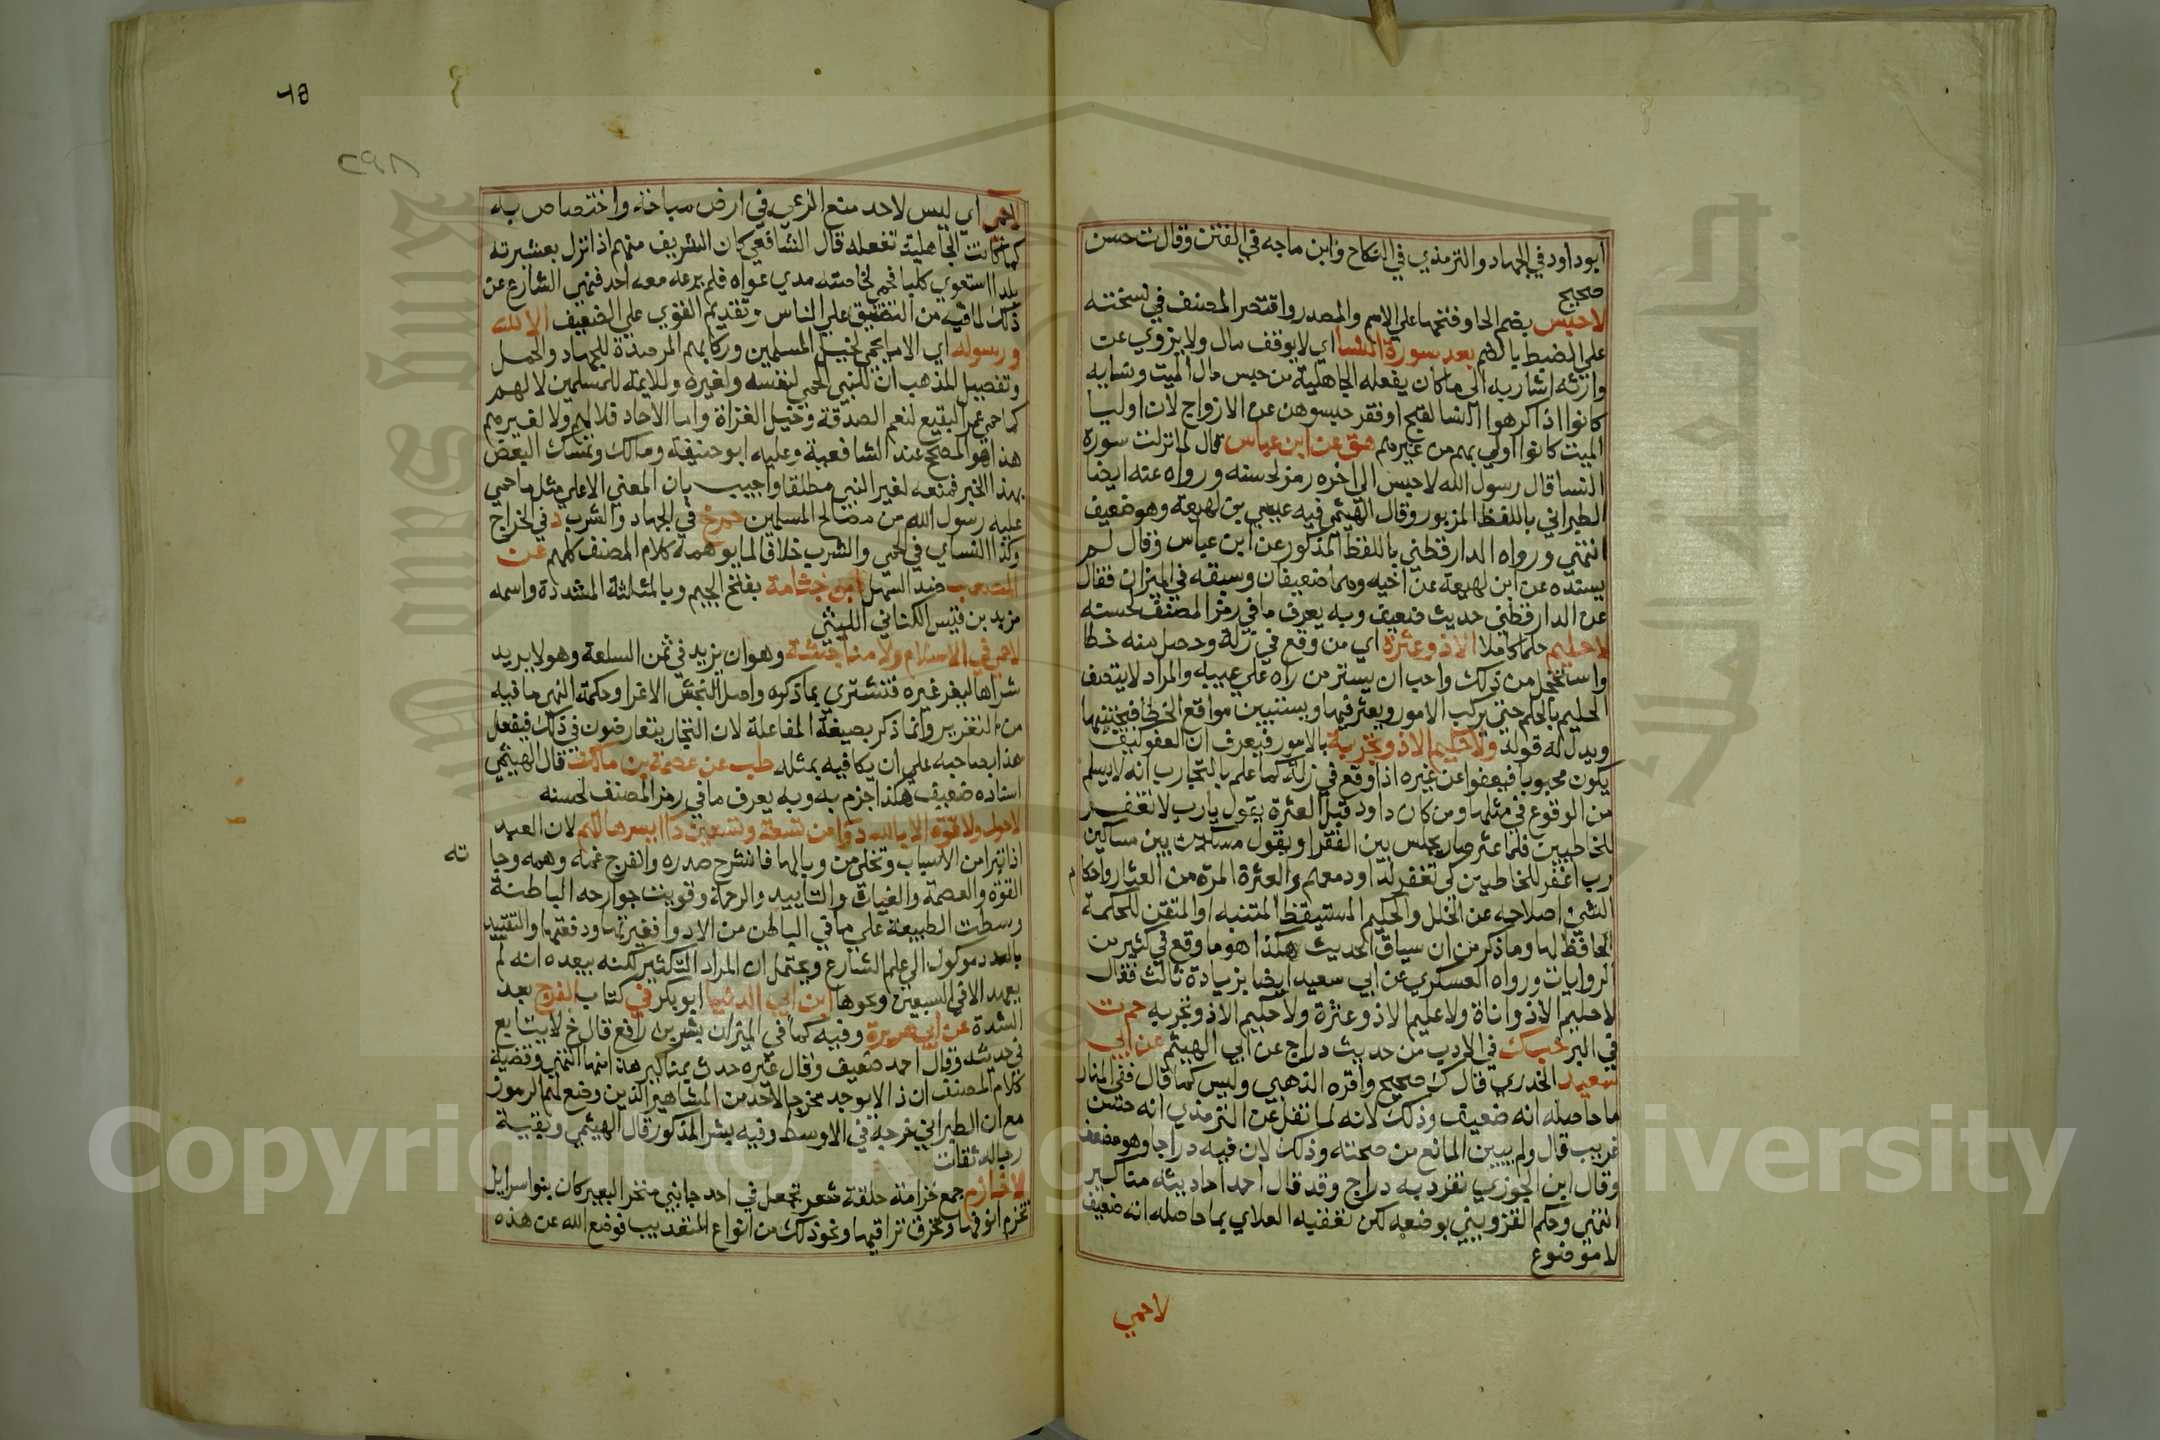 ابوداود في الجهاد والترمذي في النكاح وابن ماجه في الفتن وقال ت حسن
صحيح
لا حبس بضم الحا وفتحها على الاسم والمصدر واقتصر المصنف في نسخته
على الضبط بالضم بعد سورة النسا اي لا يوقف مال ولا يزوي عن
وارثه اشار به الى ما كان يفعله الجاهلية من حبس مال الميت ونسايه
كانوا اذا كرهوا النسا لقبح او فقر حبسوهن عن الازواج لان اوليا
الميت كانوا اولى بهم من غيرهم هق عن ابن عباس قال لما نزلت سورة
النسا قال رسول الله لا حبس الى اخره رمز لحسنه ورواه عنه ايضا
الطبراني باللفظ المزبور وقال الهيثمي فيه عيسى بن لهيعة وهو ضعيف
انتهى ورواه الدارقطني باللفظ المذكور عن ابن عباس وقال لم
يسنده عن ابن لهيعة عن اخيه وهما ضعيفان وسبقه في الميزان فقال
عن الدارقطني حديث ضعيف وبه يعرف ما في رمز المصنف لحسنه
لا حليم حلما كاملا الا ذو عثرة اي من وقع في زلة وحصل منه خطا
واستخجل من ذلك واحب ان يستر من راه على عيبه والمراد لا يتصف
الحليم بالحلم حتى يركب الامور ويعثر فيها ويستبين مواقع الخطا فيجتنبها
ويدل له قوله ولا حكيم الا ذو تجربة بالامور فيعرف ان العفو كيف
يكون محبوبا فيعفوا عن غيره اذا وقع في زلة كما علم بالتجارب انه لا يسلم
من الوقوع في مثلها ومن كان داود قبل العثرة يقول يارب لا تغفر
للخاطيين فلما عثر صار يجلس بين الفقرا ويقول مسكين بين مساكين
رب اغفر للخاطيين كي تغفر لداود معهم والعثرة المرة من العثار واحكام
الشي اصلاحه عن الخلل والحكيم المستيقظ المتنبه او المتقن للحكمة
الحافظ لها وما ذكر من ان سياق الحديث هكذا هو ما وقع في كثير من
الروايات ورواه العسكري عن ابي سعيد ايضا بزيادة ثالث فقال
لا حليم الا ذو اناة ولا عليم الا ذو عثرة ولا حكيم الا ذو تجربه حم ت
في البر حب ك في الادب من حديث دراج عن ابي الهيثم عن ابي
سعيد الخدري قال ك صحيح واقره الذهبي وليس كما قال ففي المنار
ما حاصله انه ضعيف وذلك لانه لما نقل عن الترمذي انه حسن
غريب قال ولم يبين المانع من صحته وذلك لان فيه دراجا وهو ضعيف
وقال ابن الجوزي تفرد به دراج وقد قال احمد احاديثه مناكير
انتهى وحكم القزويني بوضعه لكن تعقبه العلاي بما حاصله انه ضعيف
لا موضوع
لا حمي
٦٥
٢٩٨
لا حمى اي ليس لاحد منع الرعي في ارض مباحة واختصاص به
كما كانت الجاهلية تفعله قال الشافعي كان الشريف منهم اذا نزل بعشيرته
بلدا استعوي كلبا فحمى لخاصته مدى عواه فلم يرعه معه احد فنهى الشارع عن
ذلك لما فيه من التضييق على الناس وتقديم القوي على الضعيف الا لله
ورسوله اي الا ما يحمى لخيل المسلمين وركابهم المرصدة للجهاد والحمل
وتفصيل المذهب ان للنبي الحمى لنفسه ولغيره وللايمة للمسلمين لا لهم
كما حمى عمر البقيع لنعم الصدقة وخيل الغزاة واما الاحاد فلا لهم ولا لغيرهم
هذا هو المصحح عند الشافعية وعليه ابو حنيفة ومالك وتمسك البعض
بهذا الخبر فمنعه لغير النبي مطلقا واجيب بان المعنى الا على مثل ما حمي
عليه رسول الله من مصالح المسلمين حم خ في الجهاد والشرب د في الخراج
وكذا النساي في الحمى والشرب خلافا لما يوهمه كلام المصنف كلهم عن
الصعب ضد السهل ابن جثامة بفتح الجيم وبالمثلثة المشددة واسمه
مزيد بن قيس الكناني الليثي
لا حمى في الاسلام ولا مناجشة وهو ان يزيد في ثمن السلعة وهو لا يريد
شراها ليغر غيره فتشتري بما ذكره واصل النجش الاغرا وحكمة النهي ما فيه
من التغرير وانما ذكر بصيغة المفاعلة لان التجار يتعارضون في ذلك فيفعل
هذا بصاحبه على ان يكافيه بمثله طب عن عصمة بن مالك قال الهيثمي
اسناده ضعيف هكذا جزم به وبه يعرف ما في رمز المصنف لحسنه
لا حول ولا قوة الا بالله دوا من تسعة وتسعين دا ايسرها الهم لان العبد
اذا تبرا من الاسباب وتخلى من وبالها فانشرح صدره وانفرج غمه وهمه وجا
ته
القوة والعصمة والغياث والتاييد والرحمة وقويت جوارحه الباطنة
وسطت الطبيعة على ما في الباطن من الادوا فغيرتها ودفعتها والتقييد
بالعدد موكول الى علم الشارع ويحتمل ان المراد التكثير لكنه يبعده انه لم
يعهد الا في السبعين ونحوها ابن ابي الدنيا ابو بكر في كتاب الفرج بعد
الشدة عن ابي هريرة وفيه كما في الميزان بشر بن رافع قال خ لا يتابع
في حديثه وقال احمد ضعيف وقال غيره حدث بمناكير هذا منها انتهى وقضية
كلام المصنف ان ذا لا يوجد مخرجا لاحد من المشاهير الذين وضع لهم الرموز
مع ان الطبراني خرجه في الاوسط وفيه بشر المذكور قال الهيثمي وبقية
رجاله ثقات
لا خزام جمع خزامة حلقة شعر تجعل في احد جانبي منخر البعير كان بنوا اسرايل
تخزم انوفها وتخرق تراقيها ونحو ذلك من انواع التعذيب فوضع الله عن هذه
Copyright © King Saud University